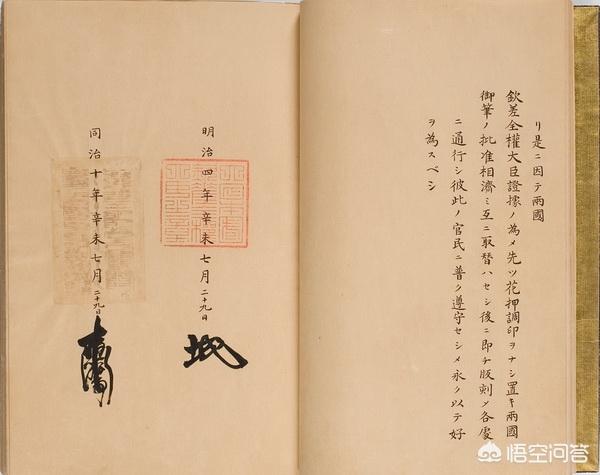 リ是ニ因テ兩國
欽差全權大臣證據ノ為メ先ツ花押調印ヲナシ置キ兩國
御筆ノ批准相濟ミ互ニ取替ハセシ後ニ即チ版刻メ各處
ニ通行シ彼此ノ官民ニ普ク遵守セシメ永ク以テ好
ヲ為スベシ
明治四年辛未七月二十九日
同治十年辛未七月二十九日
悟空问答